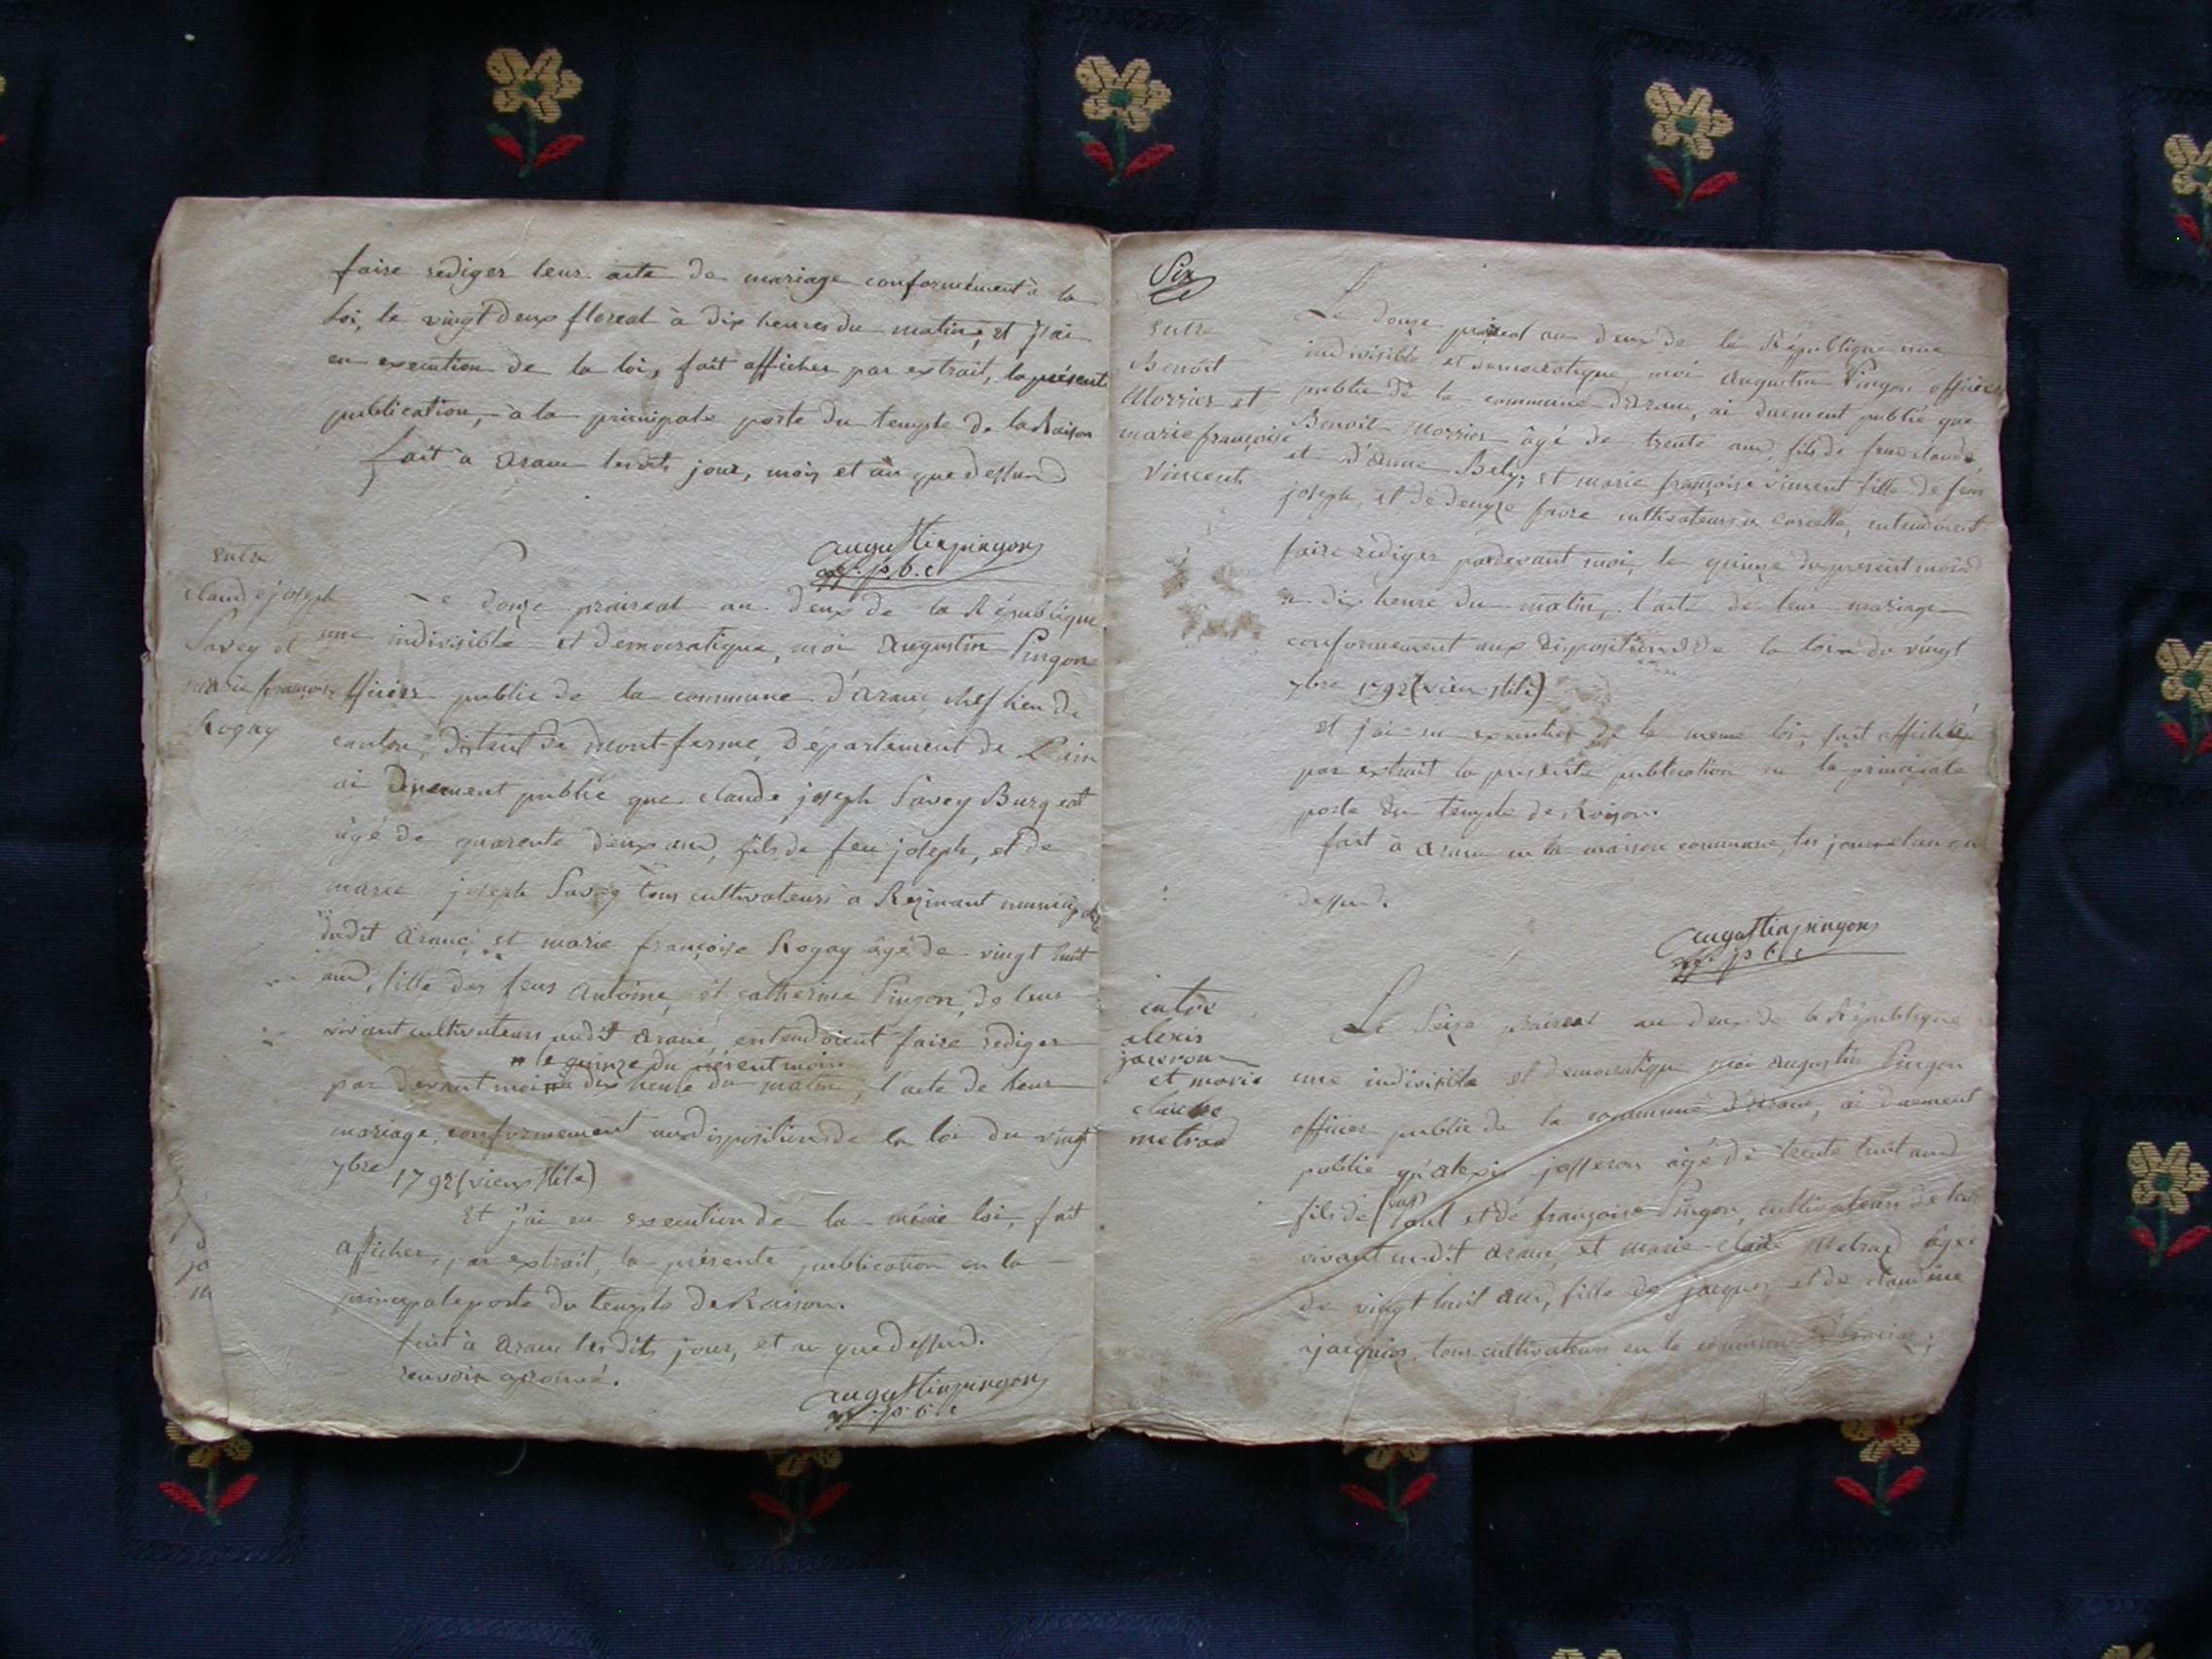 faire rediger leur acte de mariage conformément à la
Loi, le vingt deux floreal à dix heures du matin; et j'ai
en execution de la loi, fait afficher par extrait, la présente
publication, à la principale porte du temple de la Raison
fait à aranc lesdits jour, mois et an que dessus
augustin pingon
off. p. b. c
entre
claude joseph
Savey et
marie françoise
Rogay
Le douze praireal an deux de la République
une indivisible et democratique, moi augustin Pingon
officier public de la commune d'aranc, chef lieu de
canton, district de mont-ferme, département de L'ain
ai duement publié que claude joseph Savey Burgeat
âgé de quarente deux ans, fils de feu joseph, et de
marie joseph Savey tous cultivateurs à Rézinant municipalité
dudit aranc; et marie françoise Rogay âgé de vingt huit
ans, fille des feus antoine, et catherine Pingon, de leur
vivant cultivateurs audit aranc, entendoient faire rediger
# le quinze du présent mois
par devant moi # à dix heure du matin, l'acte de leur
mariage, conformement aux dispositions de la loi du vingt
7bre 1792 (vieux stile)
Et j'ai en execution de la même loi, fait
afficher, par extrait, la présente publication en la
principale porte du temple de Raison.
fait à aranc lesdits jour, et an que dessus.
renvoir aprouvé.
augustin pingon
off. p. b. c
Six
entre
Benoit
Morrier et
marie françoise
Vincent
Le douze praireal an deux de la République une
indivisible et democratique, moi augustin Pingon officier
public de la commune d'aranc, ai duement publié que
Benoit Morrier âgé de trente ans, fils de feu claude,
et d'anne Bely; et marie françoise vincent fille de feu
joseph, et de denyse frere cultivateurs à corcelle, entendoient
faire rediger pardevant moi, le quinze du present mois
à dix heure du matin, l'acte de leur mariage
conformement aux dispositions de la loi du vingt
7bre 1792 (vieu stile)
et j'ai en execution de la meme loi, fait afficher
par extrait la presente publication en la principale
porte du temple de Raison.
fait à aranc en la maison commune, les jour et an que
dessus.
augustin pingon
off. p. b. c
entre
alexis
jaeron
et marie
claude
metrad
Le Seize praireal an deux de la République
une indivisible et democratique moi augustin Pingon
officier public de la commune d'aranc, ai duement
publié qu'alexis josseron âgé de trente huit ans
fils de paul et de françoise Pingon, cultivateurs de leur
vivant audit aranc, et marie claude Metrad âgé
de vingt huit ans, fille de jacques et de claudine
jacquier, tous cultivateurs en la commune